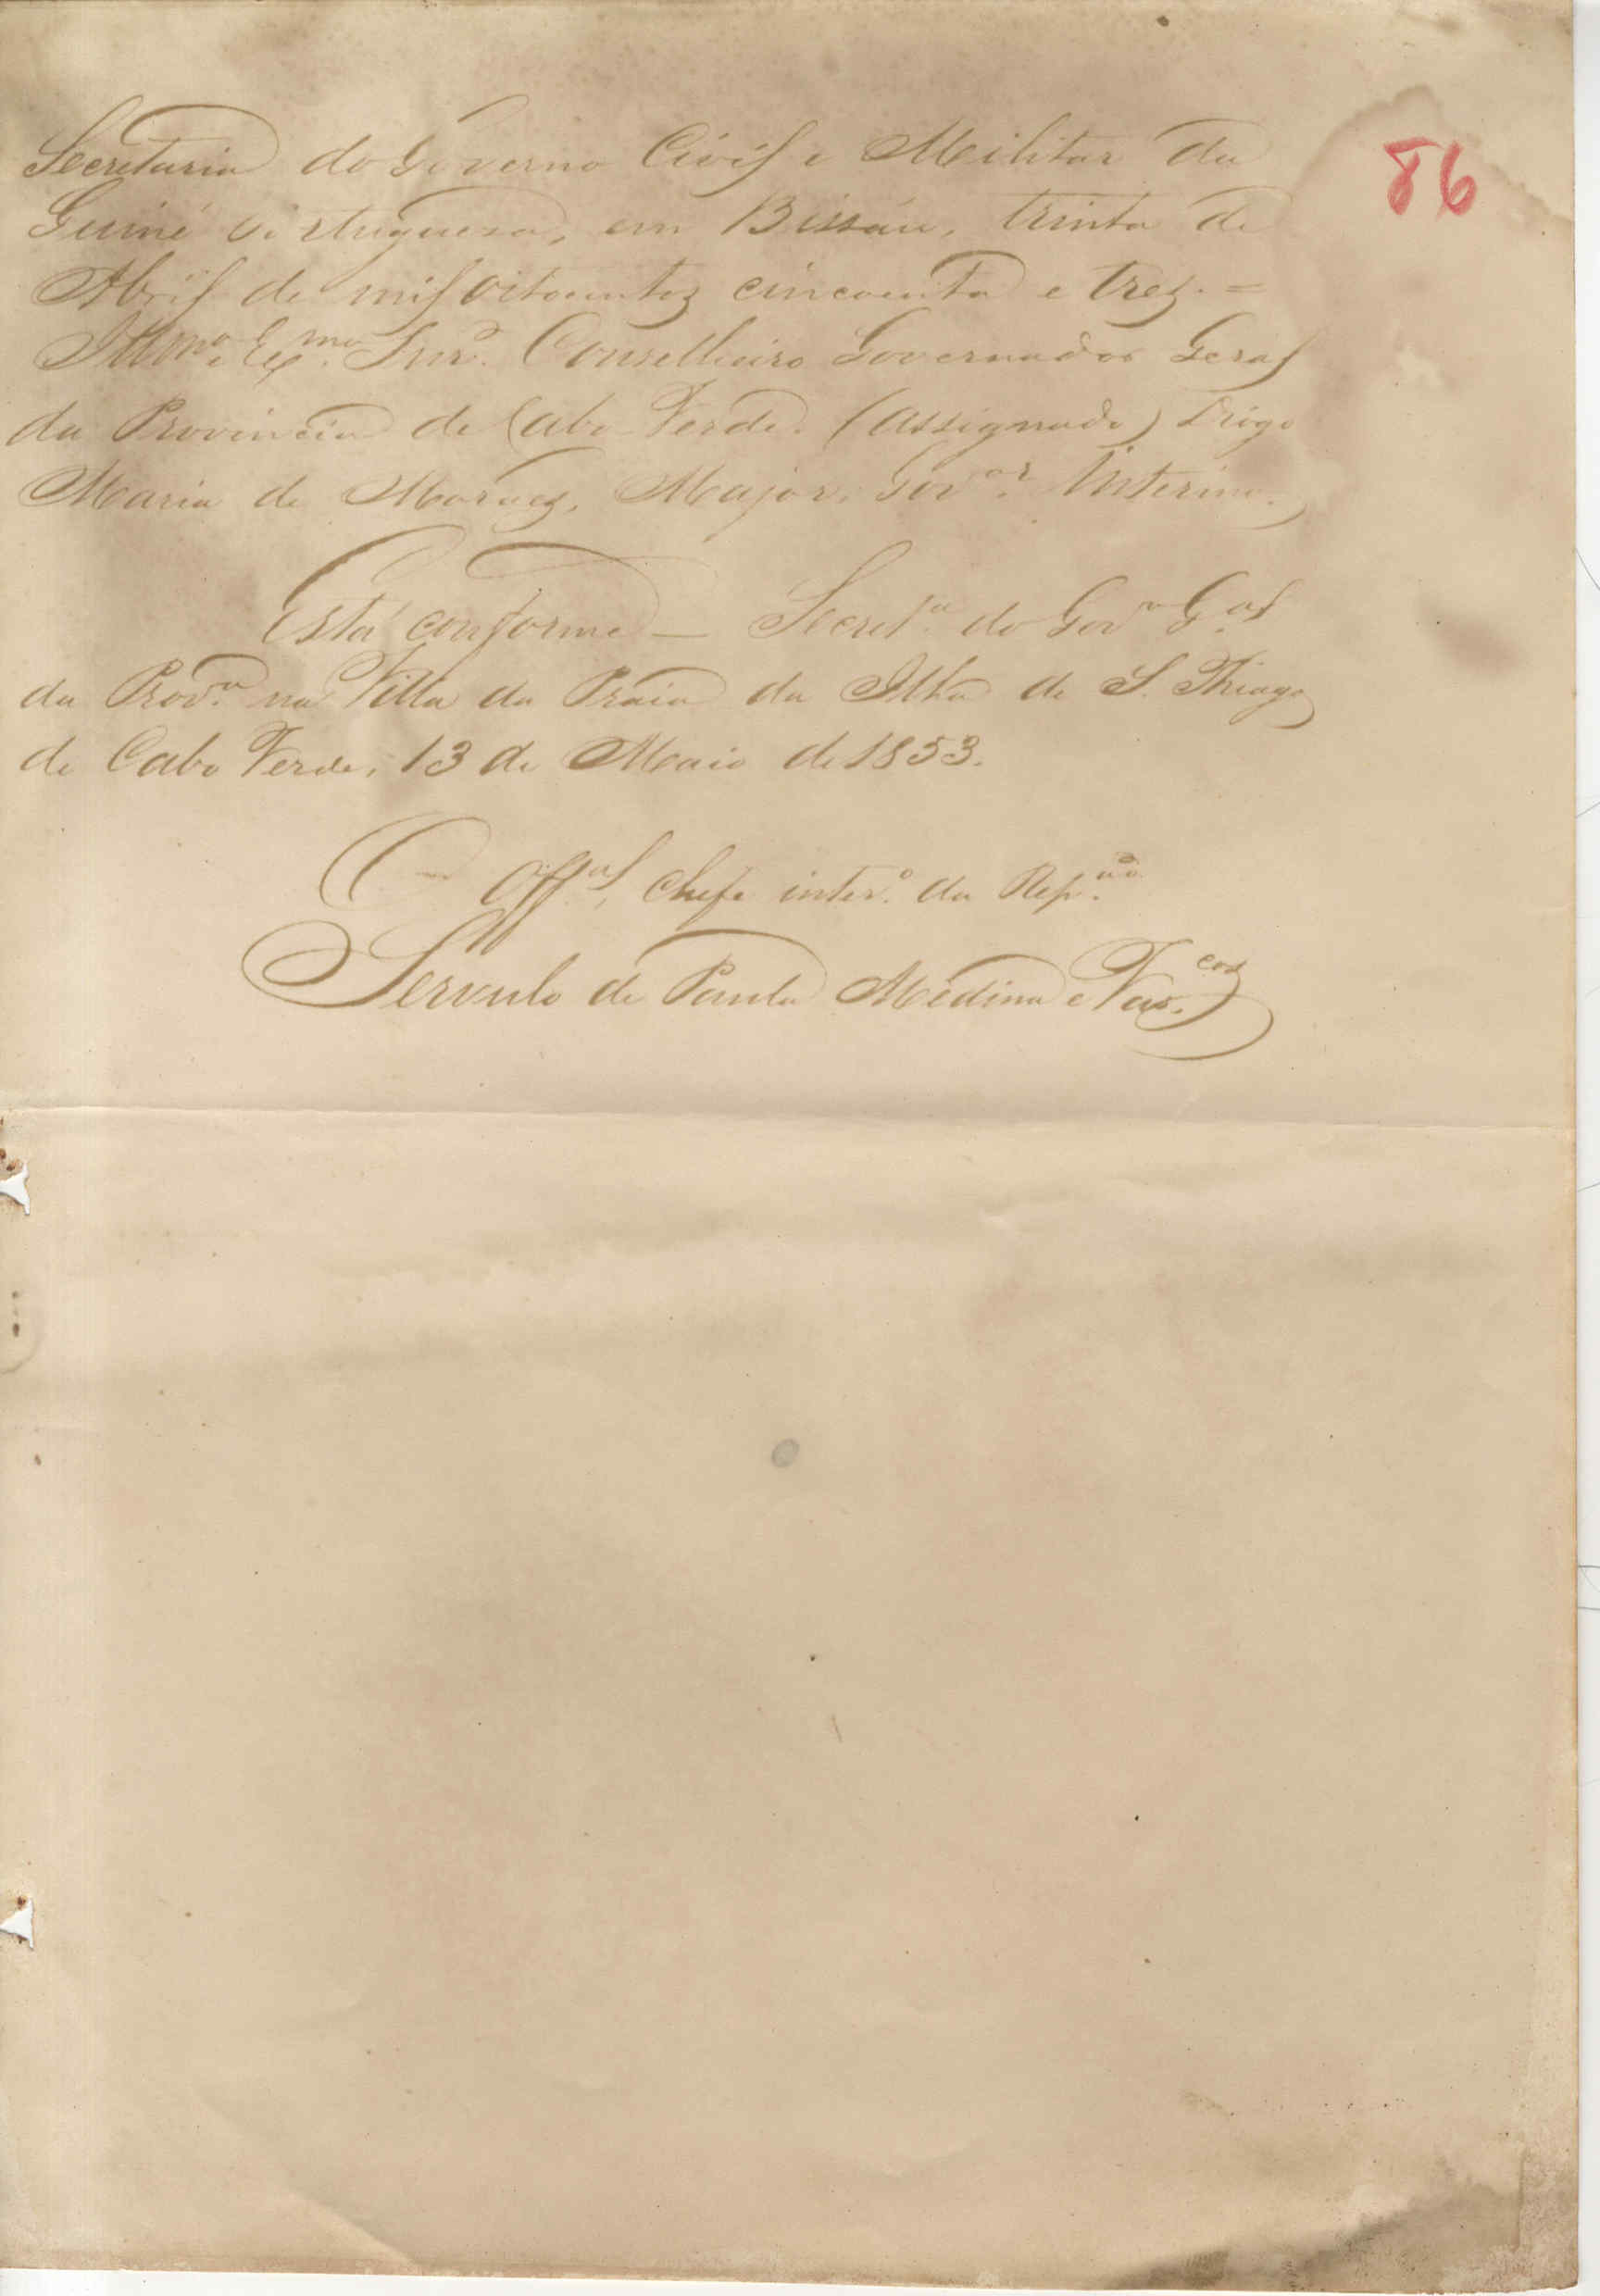 86
Secretaria do Governo Civil e Militar da
Guiné Portugueza, em Bissáu, trinta de
Abril de mil oitocentos cincoenta e trez. =
Illmo. e Exmo. Snr. Conselheiro Governador Geral
da Provincia de Cabo Verde. (assignado) Diogo
Maria de Moraes, Major, Govor. Interino.
Está conforme — Secreta. do Govo. Gal
da Prova. na Villa da Praia da Ilha de S. Thiago
de Cabo Verde, 13 de Maio de 1853.
O Offal, Chefe intero. da Repam.
Servulo de Paula Medina e Vascos.